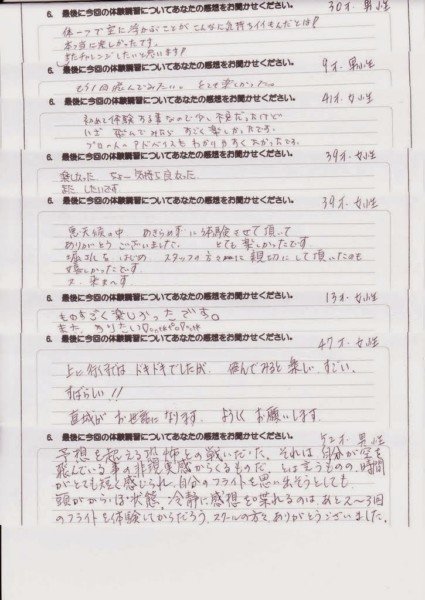 6. 最後に今回の体験講習についてあなたの感想をお聞かせください。 30才. 男性
体一つで空に浮かぶことがこんなに気持ちイイもんだとは!
本当に楽しかったです。
またチャレンジしたいと思います!!
6. 最後に今回の体験講習についてあなたの感想をお聞かせください。 9才. 男性
もう1回飛んでみたい。とても楽しかった。
6. 最後に今回の体験講習についてあなたの感想をお聞かせください。 41才. 女性
初めて体験する事なので少し不安だったけど
いざ 飛んでみたら すごく楽しかったです。
プロの人のアドバイスもわかりやすくよかったです。
6. 最後に今回の体験講習についてあなたの感想をお聞かせください。 39才. 女性
楽しかった. ちょー気持ち良かった.
また したいです
6. 最後に今回の体験講習についてあなたの感想をお聞かせください。 39才. 女性
悪天候の中 あきらめずに体験させて頂いて
ありがとう ございました. とても楽しかったです
をはじめ スタッフの方々に親切にして頂いたのも
嬉しかったです
又. 来まーす
6. 最後に今回の体験講習についてあなたの感想をお聞かせください。 13才. 女性
ものすごく楽しかったです。
また、やりたい
6. 最後に今回の体験講習についてあなたの感想をお聞かせください。 47才. 女性
上に行くまでは ドキドキでしたが. 飛んでみると楽しい. すごい.
すばらしい!!
がお世話になります. よろしくお願いします.
6. 最後に今回の体験講習についてあなたの感想をお聞かせください。 52才. 男性
予想を超える恐怖との戦いだった。それは自分が空を
飛んでいる事の非現実感からくるものだ。とは言うものの、時間
がとても短く感じられ、自分のフライトを思い出そうとしても、
頭がからっぽ状態。冷静に感想を喋れるのはあと2〜3回
のフライトを体験してからだろう。スクールの方々、ありがとうございました。